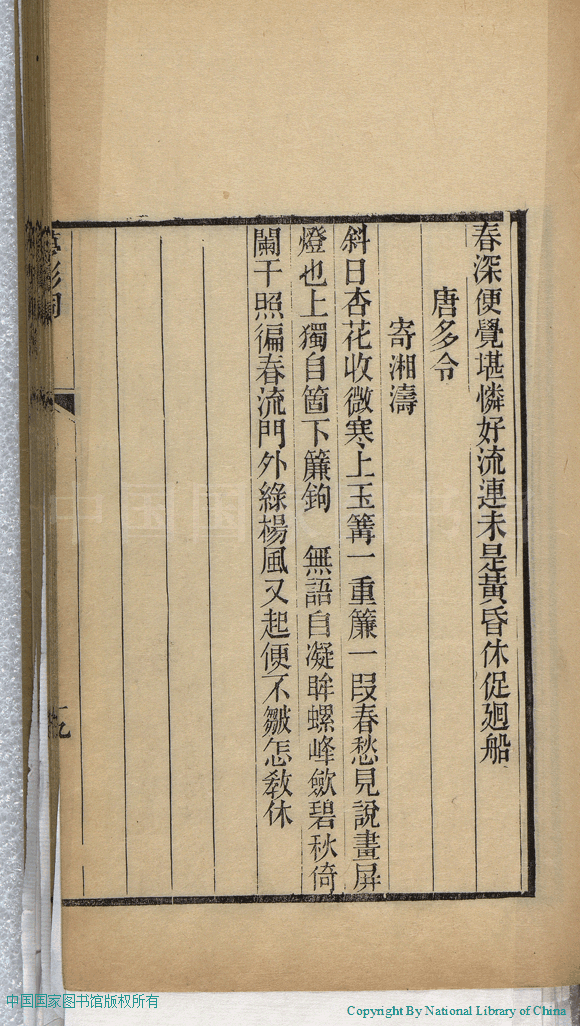 春深便覺堪憐好流連未是黃昏休促廻船
唐多令
寄湘濤
斜日杏花收微寒上玉篝一重簾一段春愁見說畫屏
燈也上獨自箇下簾鉤　無語自凝眸螺峰斂碧秋倚
闌干照徧春流門外綠楊風又起便不皺怎教休
影詞
中国国家图书馆版权所有
Copyright By National Library of China